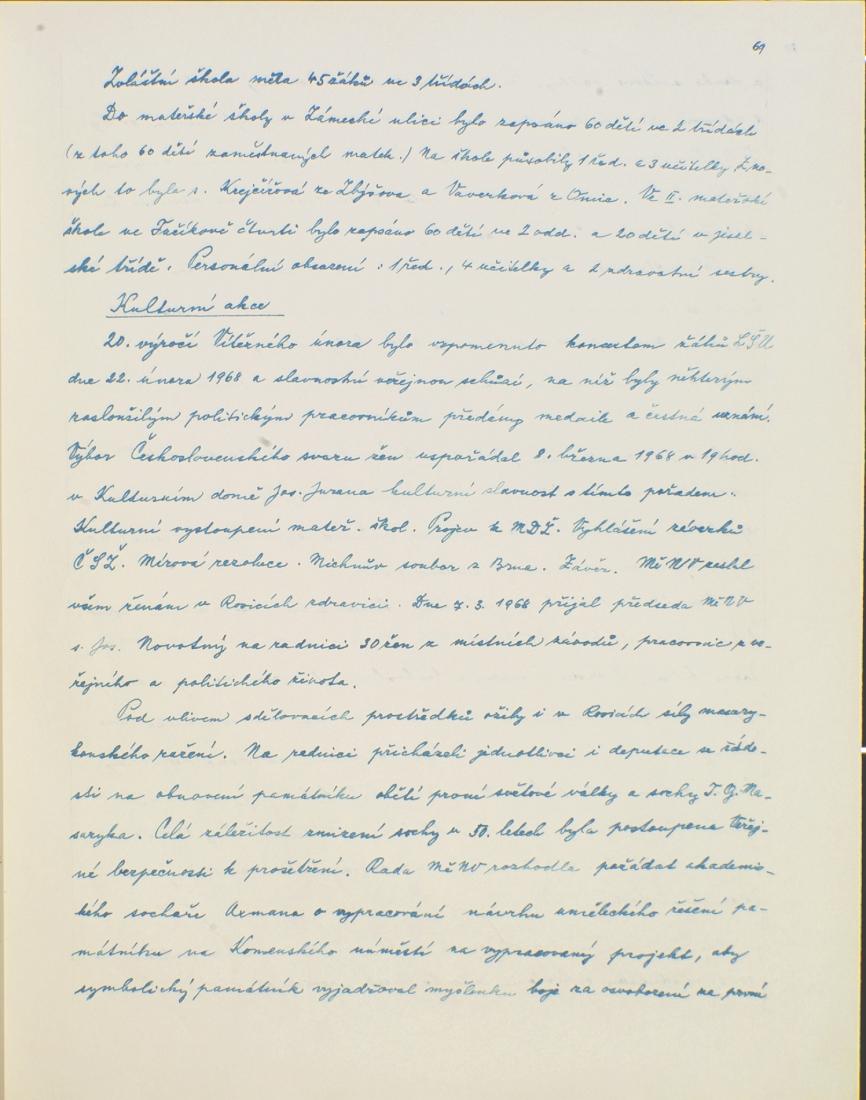 69
Zvláštní škola měla 45 žáků ve 3 třídách.
Do mateřské školy v Zámecké ulici bylo zapsáno 60 dětí ve 2 třídách
(z toho 60 dětí zaměstnaných matek.) Na škole působily 1 řed. a 3 učitelky Z no-
vých to byla s. Krejčířová ze Zbýšova a Vaverková z Omic. Ve II. mateřské
škole ve Fačíkově čtvrti bylo zapsáno 60 dětí ve 2 odd. a 20 dětí v jesel-
ské třídě. Personální obsazení: 1 řed., 4 učitelky a 2 zdravotní sestry.
Kulturní akce
20. výročí Vítězného února bylo vzpomenuto koncertem žáků LŠU
dne 22. února 1968 a slavnostní veřejnou schůzí, na níž byly některým
zasloužilým politickým pracovníkům předány medaile a čestná uznání.
Výbor Československého svazu žen uspořádal 8. března 1968 v 19 hod.
v Kulturním domě Jos. Jurana kulturní slavnost s tímto pořadem:
Kulturní vystoupení mateř. škol. Projev k MDŽ. Vyhlášení závazků
ČSŽ. Mírová rezoluce. Nichnův soubor z Brna. Závěr. MěNV zaslal
všem ženám v Rosicích zdravici. Dne 7. 3. 1968 přijal předseda MěNV
s. Jos. Novotný na radnici 30 žen z místních závodů, pracovnic z ve-
řejného a politického života.
Pod vlivem sdělovacích prostředků ožily i v Rosicích síly masary-
kovského ražení. Na radnici přicházeli jednotlivci i deputace se žádo-
sti na obnovení památníku obětí první světové války a sochy T. G. Ma-
saryka. Celá záležitost zmizení sochy v 50. letech byla postoupena Veřej-
né bezpečnosti k prošetření. Rada MěNV rozhodla požádat akademic-
kého sochaře Axmana o vypracování návrhu uměleckého řešení pa-
mátníku na Komenského náměstí na vypracovaný projekt, aby
symbolický památník vyjadřoval myšlenku boje za osvobození na první